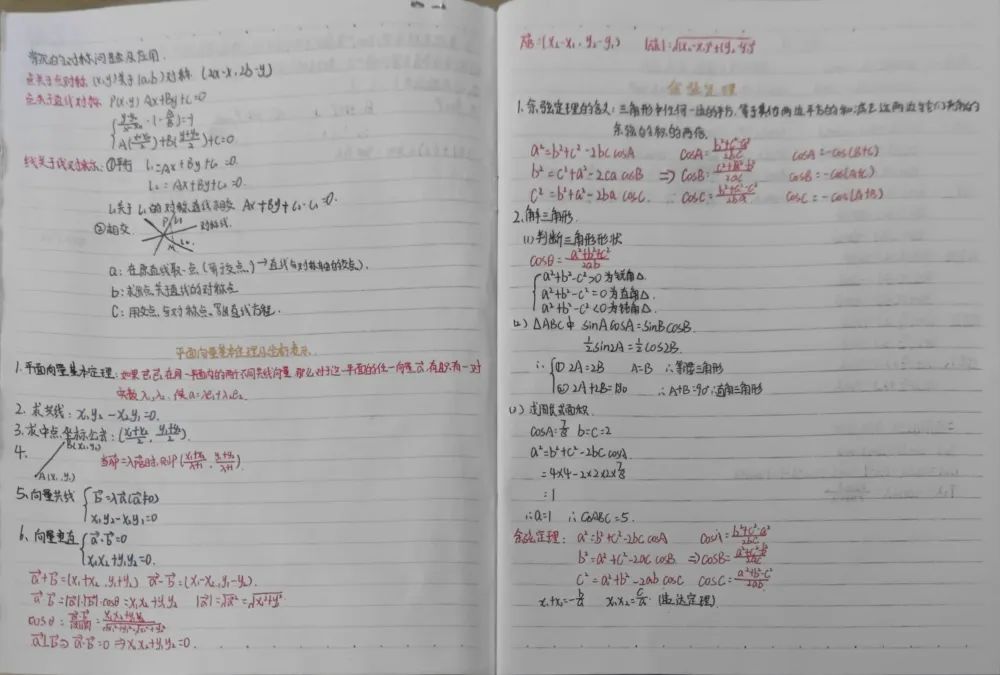 常见的对称问题及应用.
点关于点对称 (x,y)关于(a,b)对称 (2a-x,2b-y)
点关于直线对称 P(x,y) Ax+By+C=0
A(x+x₀/2)+B(y+y₀/2)+C=0
线关于线对称: ①平行 l₁=Ax+By+C₁=0.
l₂=Ax+By+C₂=0.
②相交 对称线.
a: 在原直线取一点
b: 求点关于直线的对称点
C: 用交点与对称点写出直线方程.
平面向量基本定理及坐标表示.
1.平面向量基本定理: 如果
实数λ₁,λ₂. 使a=λ₁e₁+λ₂e₂.
2. 求共线: x₁y₂-x₂y₁=0.
3.求中点坐标公式: (x₁+x₂/2, y₁+y₂/2).
4. B(x₂,y₂)
A(x₁,y₁)
5.向量共线 { b=λa(a≠0)
x₁y₂-x₂y₁=0
6. 向量垂直 { a·b=0
x₁x₂+y₁y₂=0.
a+b=(x₁+x₂,y₁+y₂) a-b=(x₁-x₂,y₁-y₂).
a·b=|a|·|b|·cosθ=x₁x₂+y₁y₂ |a|=√a²=√x₁²+y₁²
a⊥b⇒a·b=0⇒x₁x₂+y₁y₂=0.
AB=(x₂-x₁,y₂-y₁) |AB|=√(x₂-x₁)²+(y₂-y₁)²
余弦定理
1.余弦定理的含义: 三角形中任何一边的平方,等于其他两边平方的和,减去这两边与它们夹角的
余弦的积的两倍.
a²=b²+c²-2bc cosA CosA=b²+c²-a²/2bc CosA=-cos(B+C)
b²=c²+a²-2ca cosB ⇒ CosB=c²+a²-b²/2ac CosB=-cos(A+C)
C²=b²+a²-2ba cosC. CosC= CosC=-cos(A+B)
2.解三角形.
(1)判断三角形形状
cosθ=a²+b²+c²/2ab
{ a²+b²-c²>0为锐角△.
a²+b²-c²=0为直角△.
a²+b²-c²<0为钝角△.
(2) △ABC中 sinAcosA=sinBcosB.
½sin2A=½cos2B.
∴{ ① 2A=2B A=B ∴等腰三角形
② 2A+2B=180 ∴A+B=90°∴直角三角形
求周长或面积.
CosA=7/8 b=C=2
a²=b²+C²-2bc cosA
=4+4-2×2×2×7/8
=1
∴a=1 ∴C△ABC=5.
余弦定理: a²=b²+C²-2bc cosA CosA=b²+c²-a²/2bc
b²=a²+C²-2ac cosB. ⇒CosB=a²+c²-b²/2ac
C²=a²+b²-2ab cosC CosC=a²+b²-c²/2ab
x₁+x₂=-b/a x₁x₂=c/a. (韦达定理)